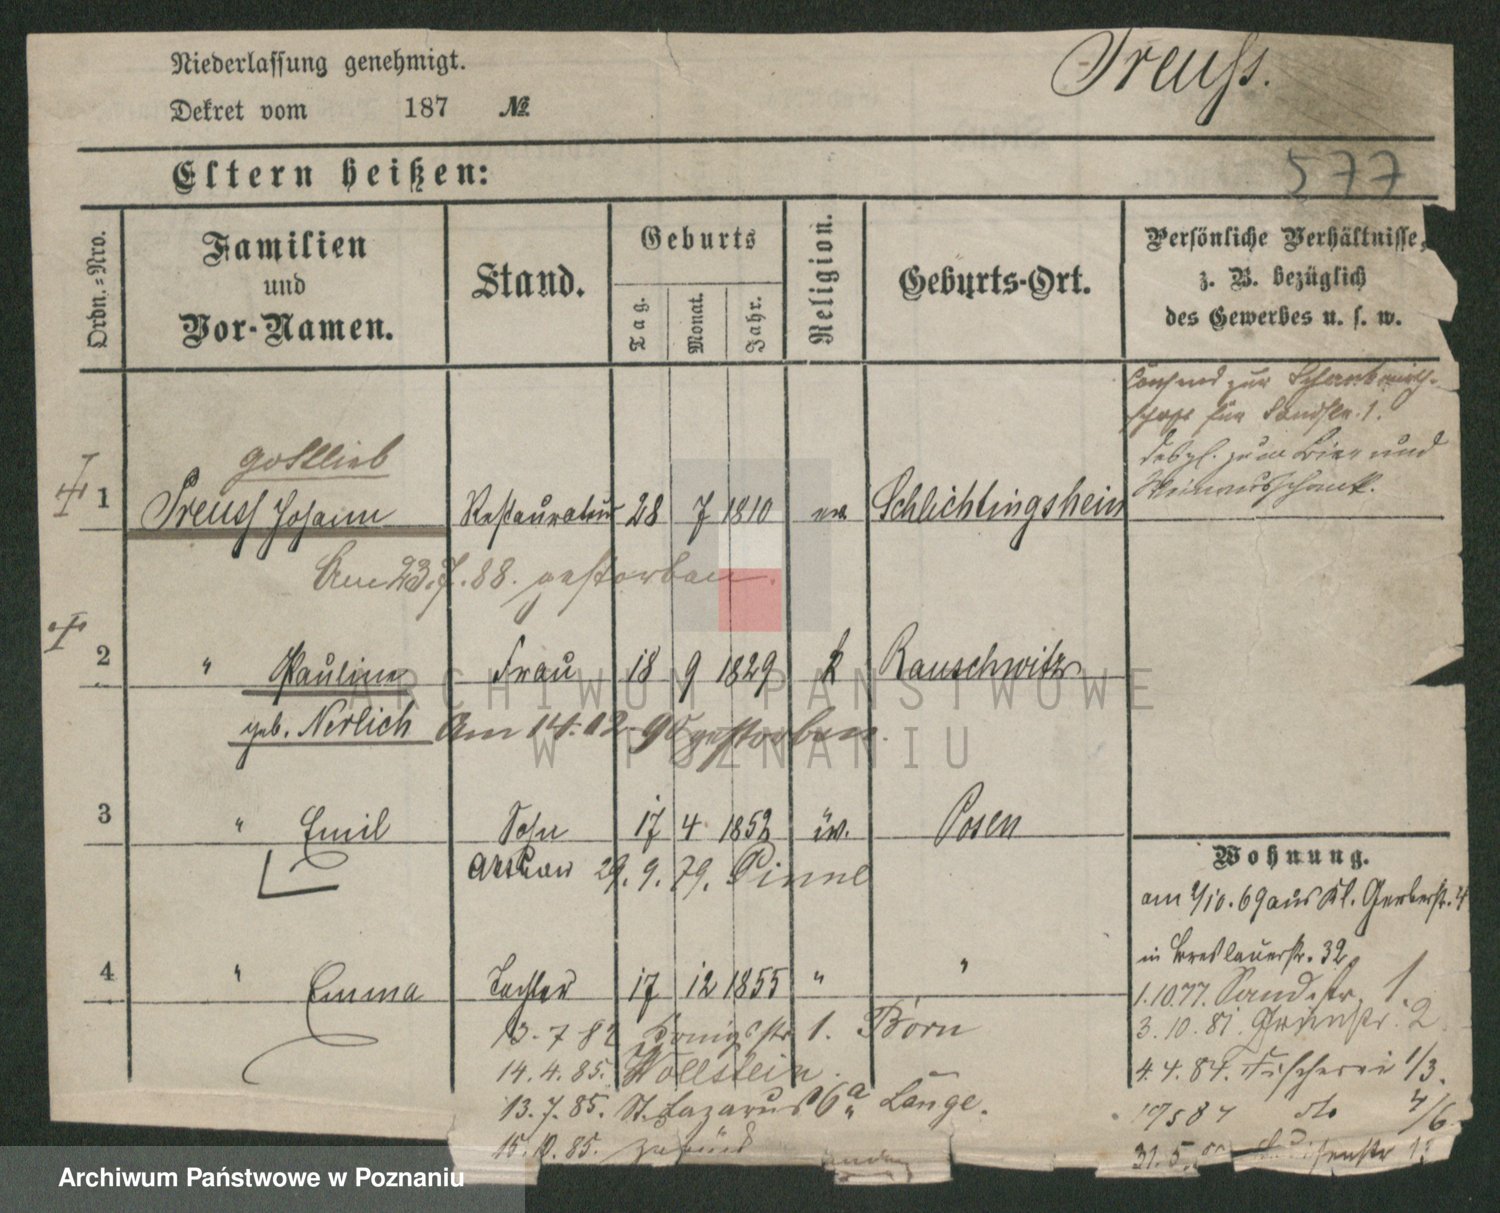 Niederlassung genehmigt.
Preuss.
Dekret vom 187 No
577
Eltern heißen:
Ordn.=Nro.
Familien und Vor-Namen.
Stand.
Geburts
Tag. Monat. Jahr.
Religion.
Geburts-Ort.
Persönliche Verhältnisse, z. B. bezüglich des Gewerbes u. s. w.
Consens zur Schankwirth-
schaft für Sandstr. 1.
desgl. zum Bier und
Weinausschank.
Gottlieb
1 Preuss Johann Restaurateur 28 7 1810 ev Schlichtingsheim
Am 23.7.88. gestorben.
2 " Pauline Frau 18 9 1829 k Rauschwitz
geb. Nerlich Am 14.12.90 gestorben.
3 " Emil Sohn 17 4 1852 ev. Posen
29. 9. 79. Pinne
4 " Emma Tochter 17 12 1855 " "
13. 7 82 Königsstr 1. Born
14. 4. 85. Wollstein.
13. 7. 85. St. Lazarus 6a Lange.
15. 10. 85. zurück
Wohnung.
am 1/10. 69 aus Kl. Gerberstr. 4
in Breslauerstr. 32
1. 10. 77. Sandstr. 1.
3. 10. 81. Grünstr. 2
4. 4. 84. Fischerei 1/3.
17 5 87 do 4/6.
31. 5.
ARCHIWUM PAŃSTWOWE
W POZNANIU
Archiwum Państwowe w Poznaniu